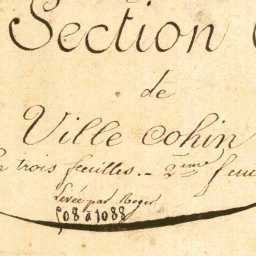 Section
de
Ville Cohin
trois feuilles.. 2ème
Levée par Roger
508 à 1088